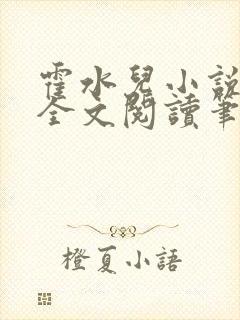 霍水兒小說
全文閱讀筆
橙夏小語